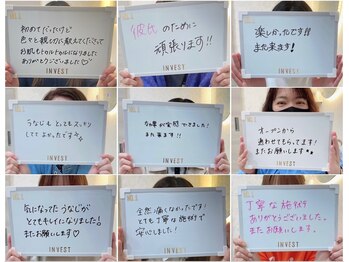 NO.1
初めてだったけど
色々と親切に教えてくださって
お肌もトゥルトゥルになりました
ありがとうございました♡
INVEST
NO.1
彼氏のために
頑張ります!!
INVEST
NO.1
楽しかったです!!
また来ます!
INVEST
うなじも とってもスッキリ
してよかったです
INVEST
効果が実感できました!
また来ます!!
INVEST
NO.1
オープンから
通わせてもらってます!
またお願いします
INVEST
気になってた うなじが
とてもキレイになりました!
またお願いします♡
INVEST
NO.1
全然痛くなかったです!
とても丁寧な施術で
安心しました!
INVEST
NO.1
丁寧な施術
ありがとうございました。
またお願いします。
INVEST